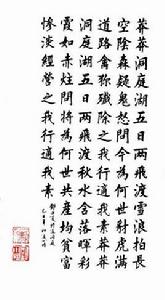 莽莽洞庭湖五日兩飛渡雪浪拍長
空陰森疑鬼怒問今為何世豺虎滿
道路禽獮殲除之我行適我素莽莽
洞庭湖五日兩飛渡秋水含落暉彩
霞如赤炷問將為何世共產均貧富
慘淡經營之我行適我素